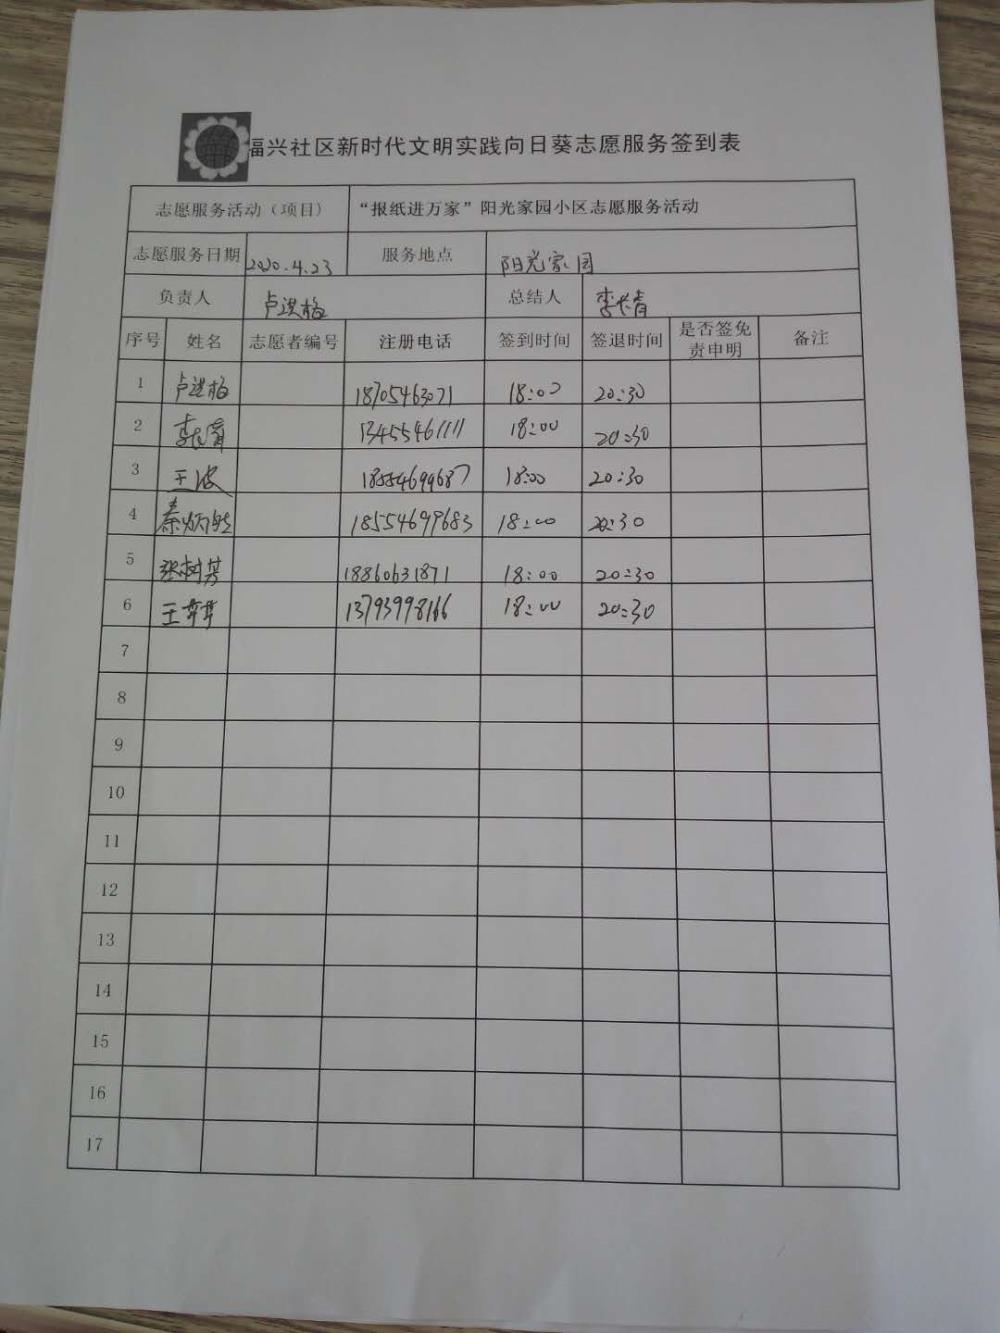 福兴社区新时代文明实践向日葵志愿服务签到表
志愿服务活动（项目） “报纸进万家”阳光家园小区志愿服务活动
志愿服务日期 2020.4.23 服务地点 阳光家园
负责人 卢洪梅 总结人 李长青
序号 姓名 志愿者编号 注册电话 签到时间 签退时间 是否签免责申明 备注
1 卢洪梅 18705463071 18:00 20:30
2 李长青 13455461111 18:00 20:30
3 王波 18554699687 18:00 20:30
4 秦 18554699683 18:00 20:30
5 张树芳 18860631871 18:00 20:30
6 王苹苹 13793998166 18:00 20:30
7
8
9
10
11
12
13
14
15
16
17